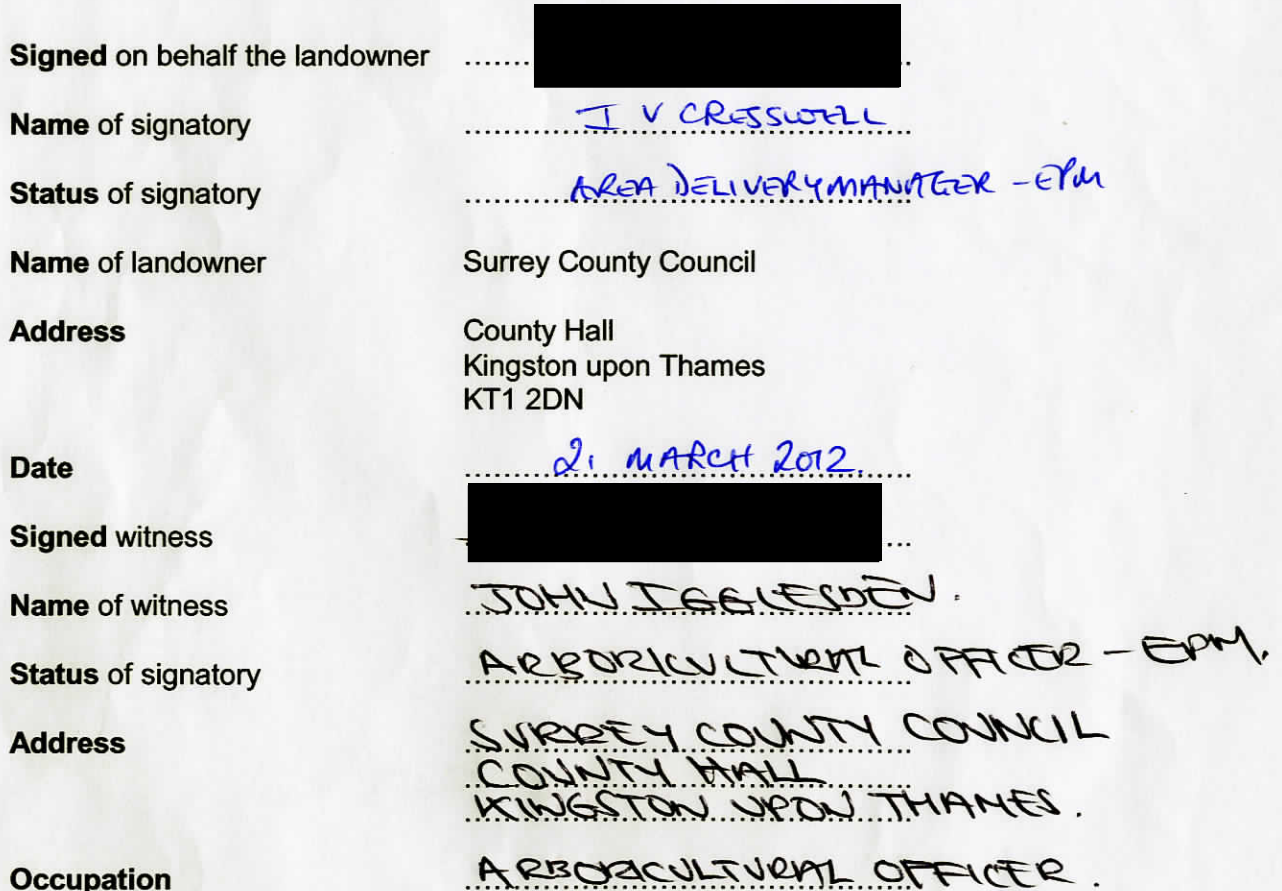 Signed on behalf the landowner
Name of signatory I V CRESSWELL
Status of signatory AREA DELIVERY MANAGER - EPM
Name of landowner Surrey County Council
Address County Hall
Kingston upon Thames
KT1 2DN
Date 21 MARCH 2012.
Signed witness
Name of witness JOHN IGGLESDEN.
Status of signatory ARBORICULTURAL OFFICER - EPM.
Address SURREY COUNTY COUNCIL
COUNTY HALL
KINGSTON UPON THAMES.
Occupation ARBORICULTURAL OFFICER.